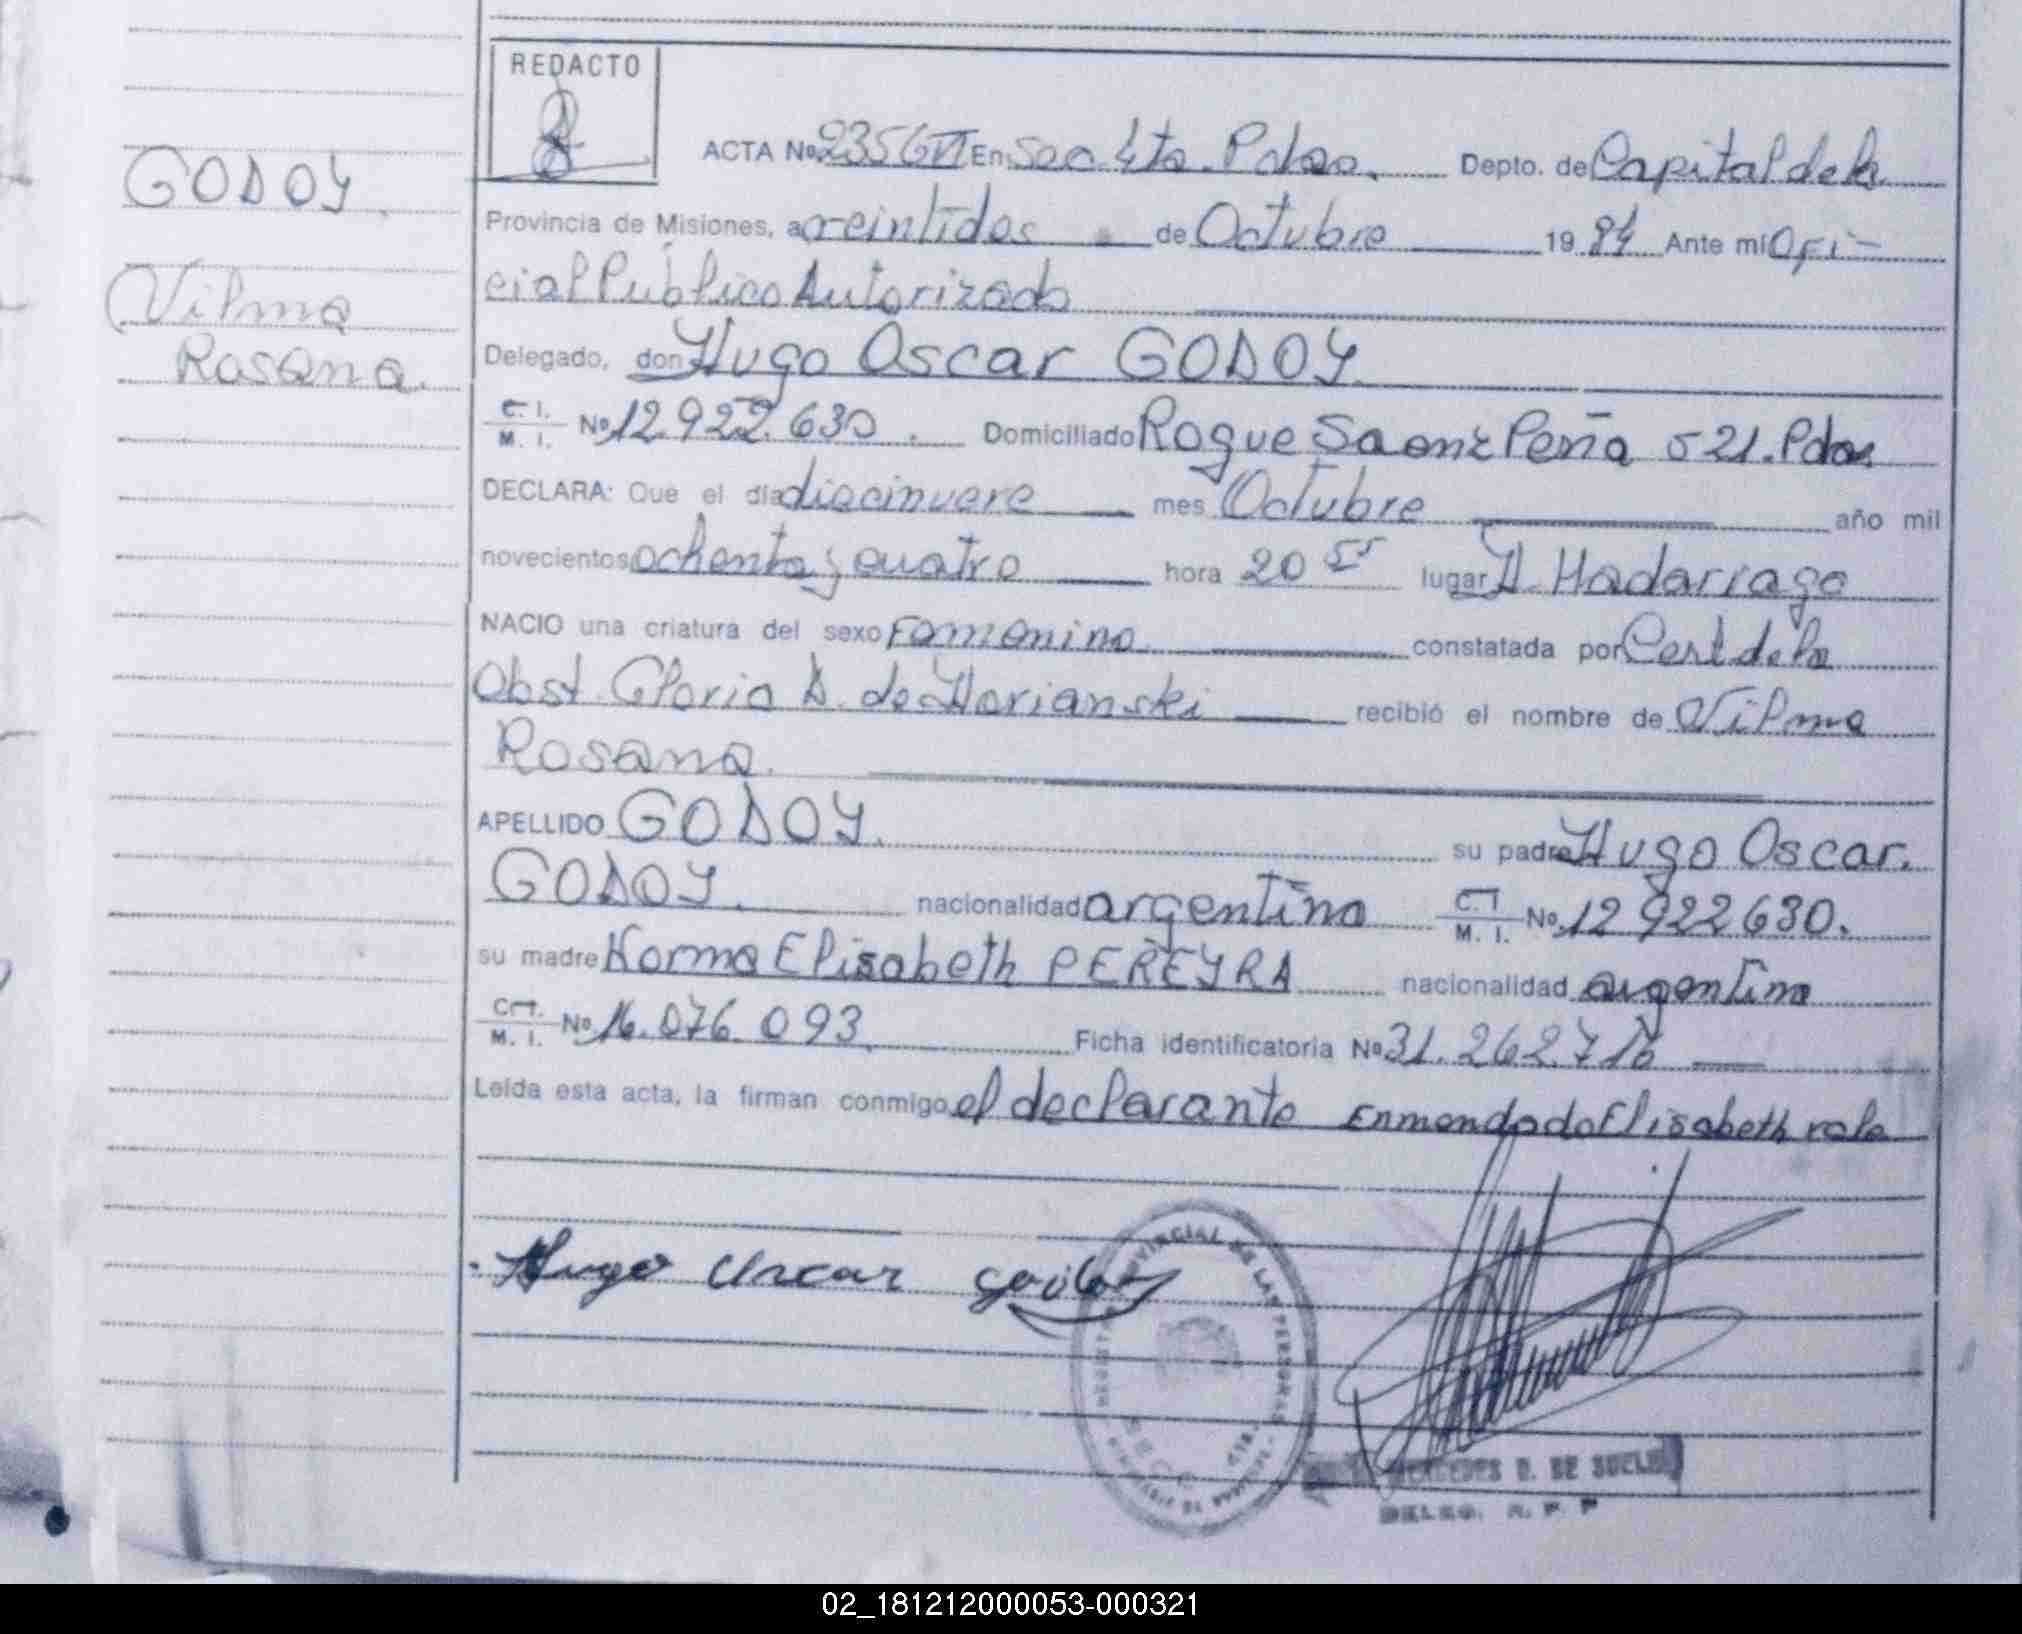 REDACTO
ACTA Nº 2356 VI En Sec. 4ta. Pdas. Depto. de Capital de la
Provincia de Misiones, a veintidos de Octubre 19 84 Ante mí Ofi-
cial Público Autorizado
Delegado, don Hugo Oscar GODOY.
C. I. M. I. Nº 12.922.630. Domiciliado Roque Saenz Peña 521. Pdas
DECLARA: Que el día diecinueve mes Octubre año mil
novecientos ochenta y cuatro hora 20 55 lugar H. Madarriaga
NACIO una criatura del sexo Femenino constatada por Cert de la
Obst. Gloria D. de Marianski recibió el nombre de Vilma
Rosana.
APELLIDO GODOY. su padre Hugo Oscar.
GODOY. nacionalidad argentina C. I. M. I. Nº 12 922 630.
su madre Norma Elisabeth PEREYRA nacionalidad argentina
C. I. M. I. Nº 16.076.093. Ficha identificatoria Nº 31.262.716
Leída esta acta, la firman conmigo el declarante Enmendado Elisabeth vale
GODOY.
Vilma
Rosana.
Hugo Oscar Godoy
REGISTRO PROVINCIAL DE LAS PERSONAS
MERCEDES D. DE
DELEG. R. P. P
02_181212000053-000321